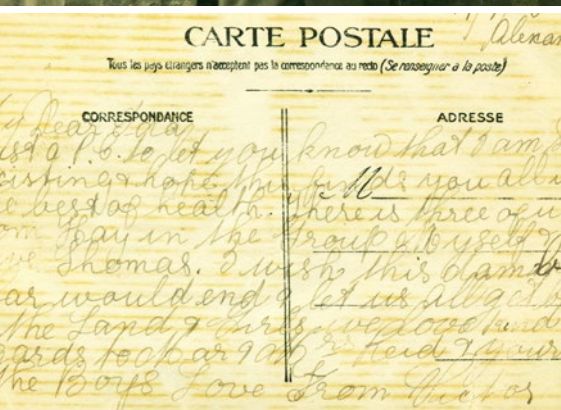 Alexan
CARTE POSTALE
Tous les pays étrangers n'acceptent pas la correspondance au recto (Se renseigner à la poste)
CORRESPONDANCE
ADRESSE
Dear
a P.C. to let you know that I am
isting & hope this finds you all
e best of health. There is three of u
om Hay in the Group Myself
Thomas. I wish this damn
ar would end & let us all get
the Land & Girls we love kind
gards to Mar Reid & your
the Boys Love From Victor
M